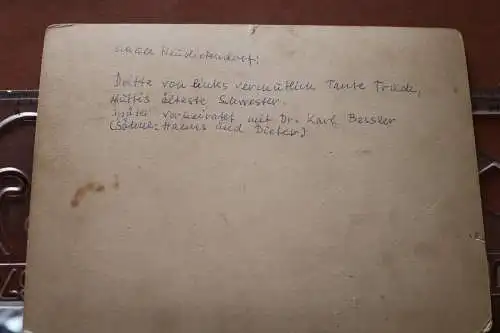 Neudietendorf:
Dritte von links vermutlich Tante Friede,
Muttis älteste Schwester.
Später verheiratet mit Dr. Karl Bessler
(Söhne: Hanns und Dieter)